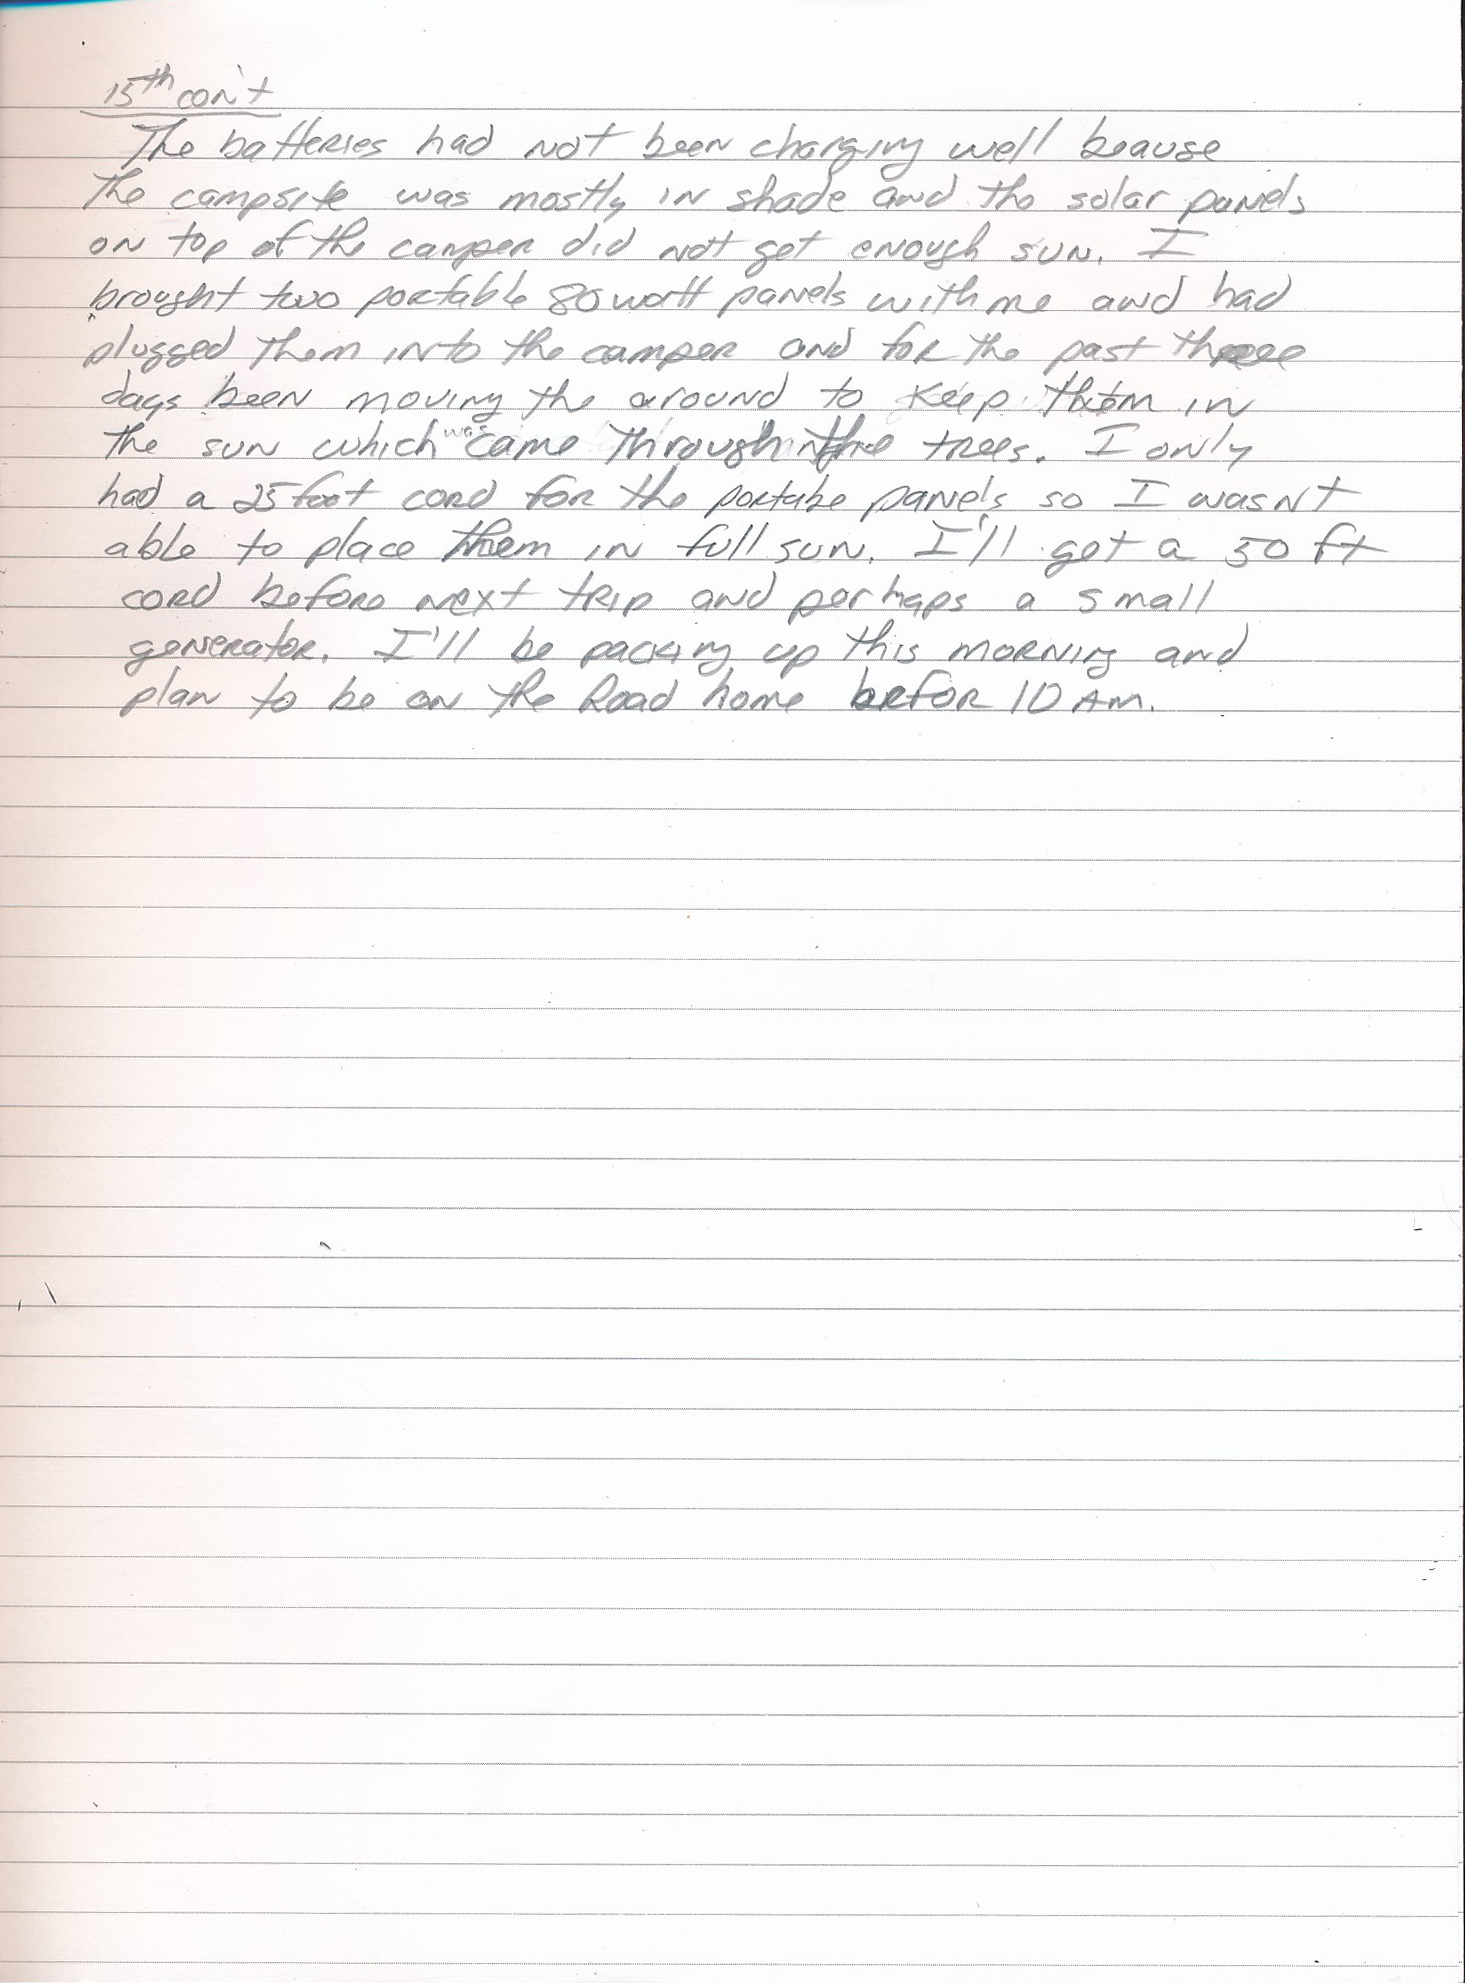 15th con't
The batteries had not been charging well beause
the campsite was mostly in shade and the solar panels
on top of the camper did not get enough sun. I
brought two portable 80 watt panels with me and had
plugged them into the camper and for the past three
days been moving the around to keep them in
the sun which was came through the trees. I only
had a 25 foot cord for the portabe panels so I wasn't
able to place them in full sun. I'll get a 50 ft
cord before next trip and perhaps a small
generator. I'll be packing up this morning and
plan to be on the Road home befor 10 AM.